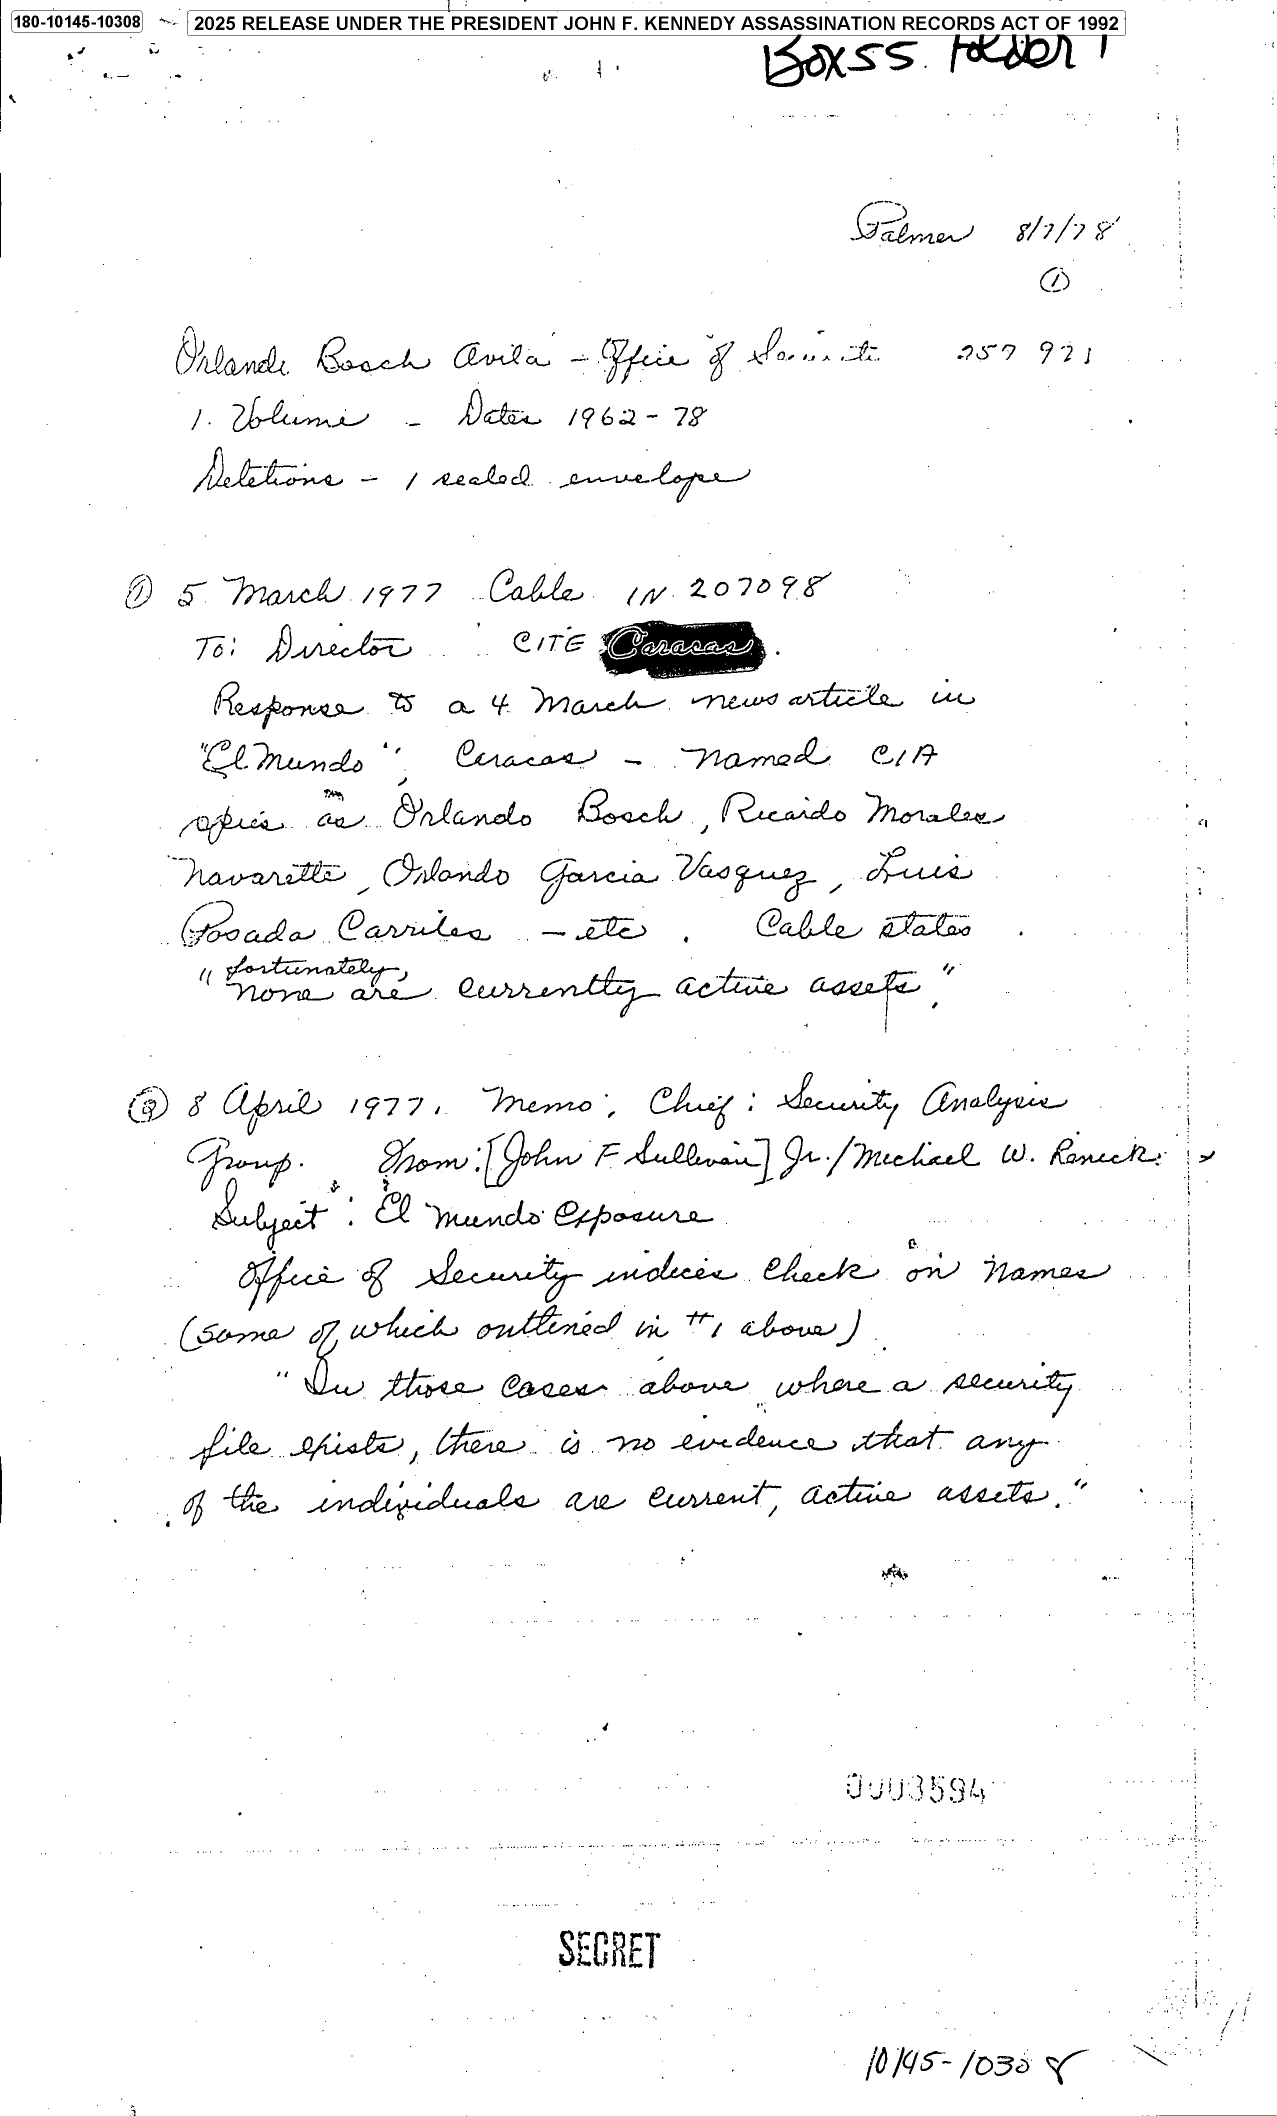 180-10145-10308 2025 RELEASE UNDER THE PRESIDENT JOHN F. KENNEDY ASSASSINATION RECORDS ACT OF 1992
Box 55. Folder 1
Palmer 8/7/78
①
Orlando Bosch Avila - Office of Security 257 921
1. Volume - Dates 1962-78
Deletions - 1 sealed envelope
① 5 March 1977 Cable IN 207098
To: Director CITE Caracas.
Response to a 4 March news article in
"El Mundo", Caracas - named CIA
spies as Orlando Bosch, Ricardo Morales
Navarette, Orlando Garcia Vasquez, Luis
Posada Carriles - etc. Cable states
"fortunately,
none are currently active assets".
② 8 April 1977. Memo: Chief: Security Analysis
Group. From: [John F Sullivan] Jr./Michael W.
Subject: El Mundo Exposure
Office of Security indices check on names
(some of which outlined in #1 above)
"In those cases above where a security
file exists, there is no evidence that any
of the individuals are current, active assets."
0003594
SECRET
10145-10308